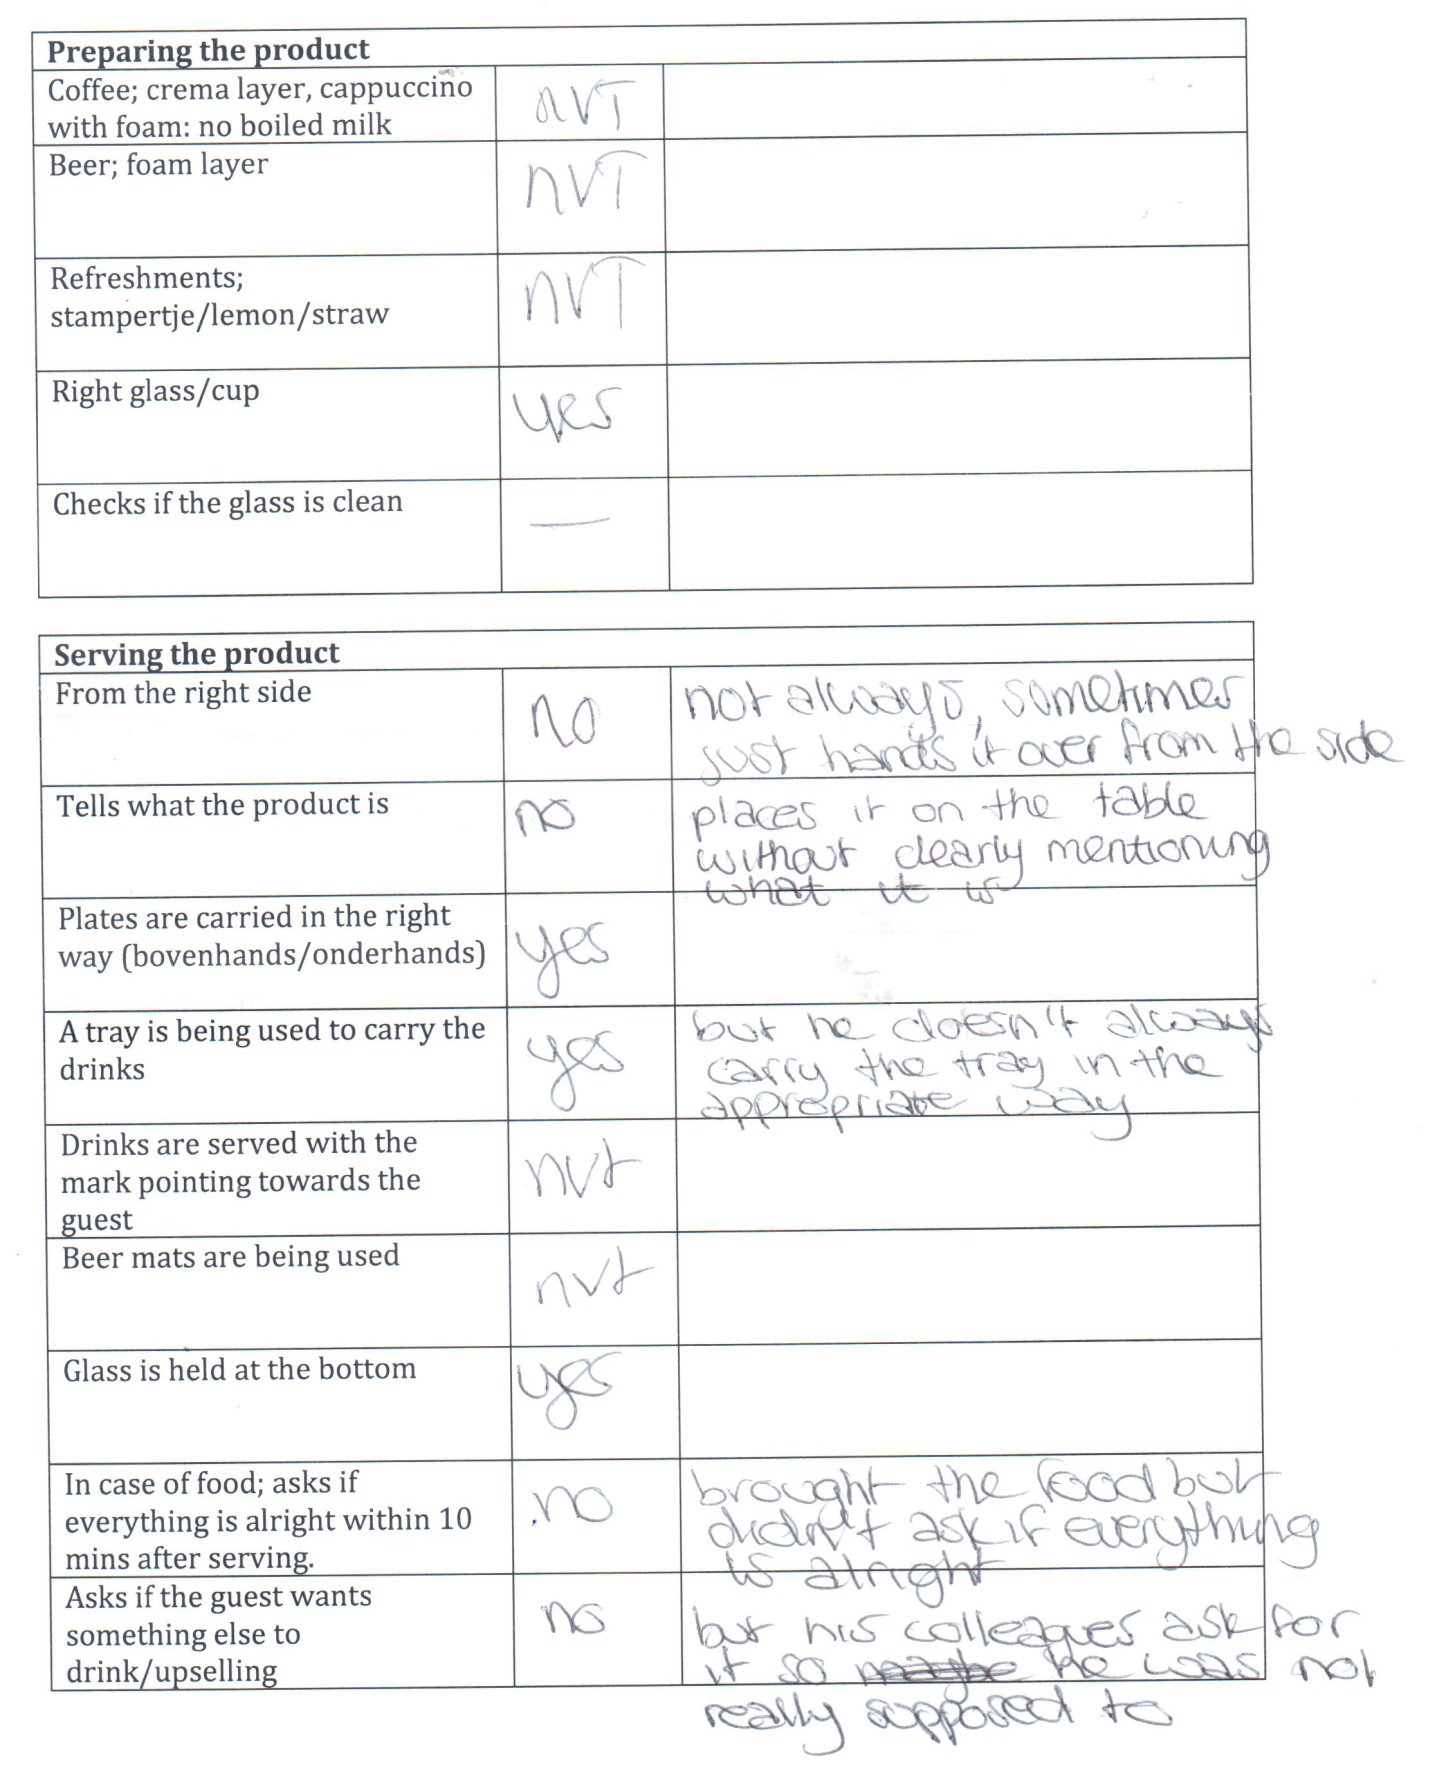 Preparing the product
Coffee; crema layer, cappuccino
with foam: no boiled milk
nvT
Beer; foam layer
nvT
Refreshments;
stampertje/lemon/straw
nvT
Right glass/cup
yes
Checks if the glass is clean
—
Serving the product
From the right side
no
not always, sometimes
just hands it over from the side
Tells what the product is
no
places it on the table
without clearly mentioning
what it is
Plates are carried in the right
way (bovenhands/onderhands)
yes
A tray is being used to carry the
drinks
yes
but he doesn't always
carry the tray in the
appropriate way
Drinks are served with the
mark pointing towards the
guest
nvt
Beer mats are being used
nvt
Glass is held at the bottom
yes
In case of food; asks if
everything is alright within 10
mins after serving.
no
brought the food but
didn't ask if everything
is alright
Asks if the guest wants
something else to
drink/upselling
no
but his colleagues ask for
it so he was not
really supposed to